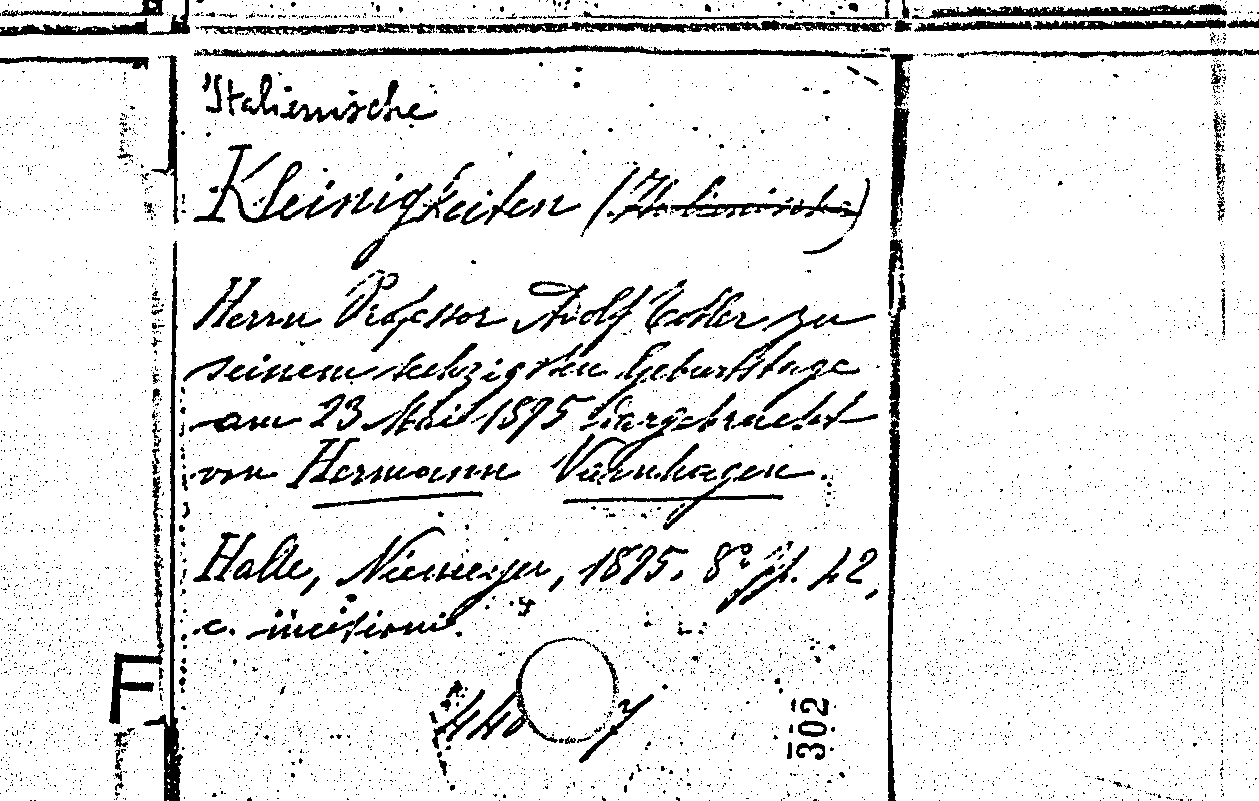 Italienische
Kleinigkeiten (Italienische)
Herrn Professor Adolf Tobler zu
seinem sechzigsten Geburtstage
am 23 Mai 1895 dargebracht
von Hermann Varnhagen.
Halle, Niemeyer, 1895. 8º pp. 42,
c. incisioni.
F
302